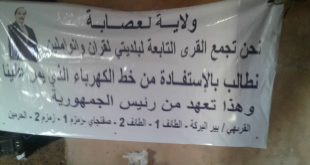 ولاية لعصابة
نحن تجمع القرى التابعة لبلديتي لقران والواملين
نطالب بالإستفادة من خط الكهرباء الذي يمر علينا
وهذا تعهد من رئيس الجمهورية
بير البركة - الطائف 1 - الطائف 2 - صفنجاي - زمزم 1 - زمزم 2 - الحرمين